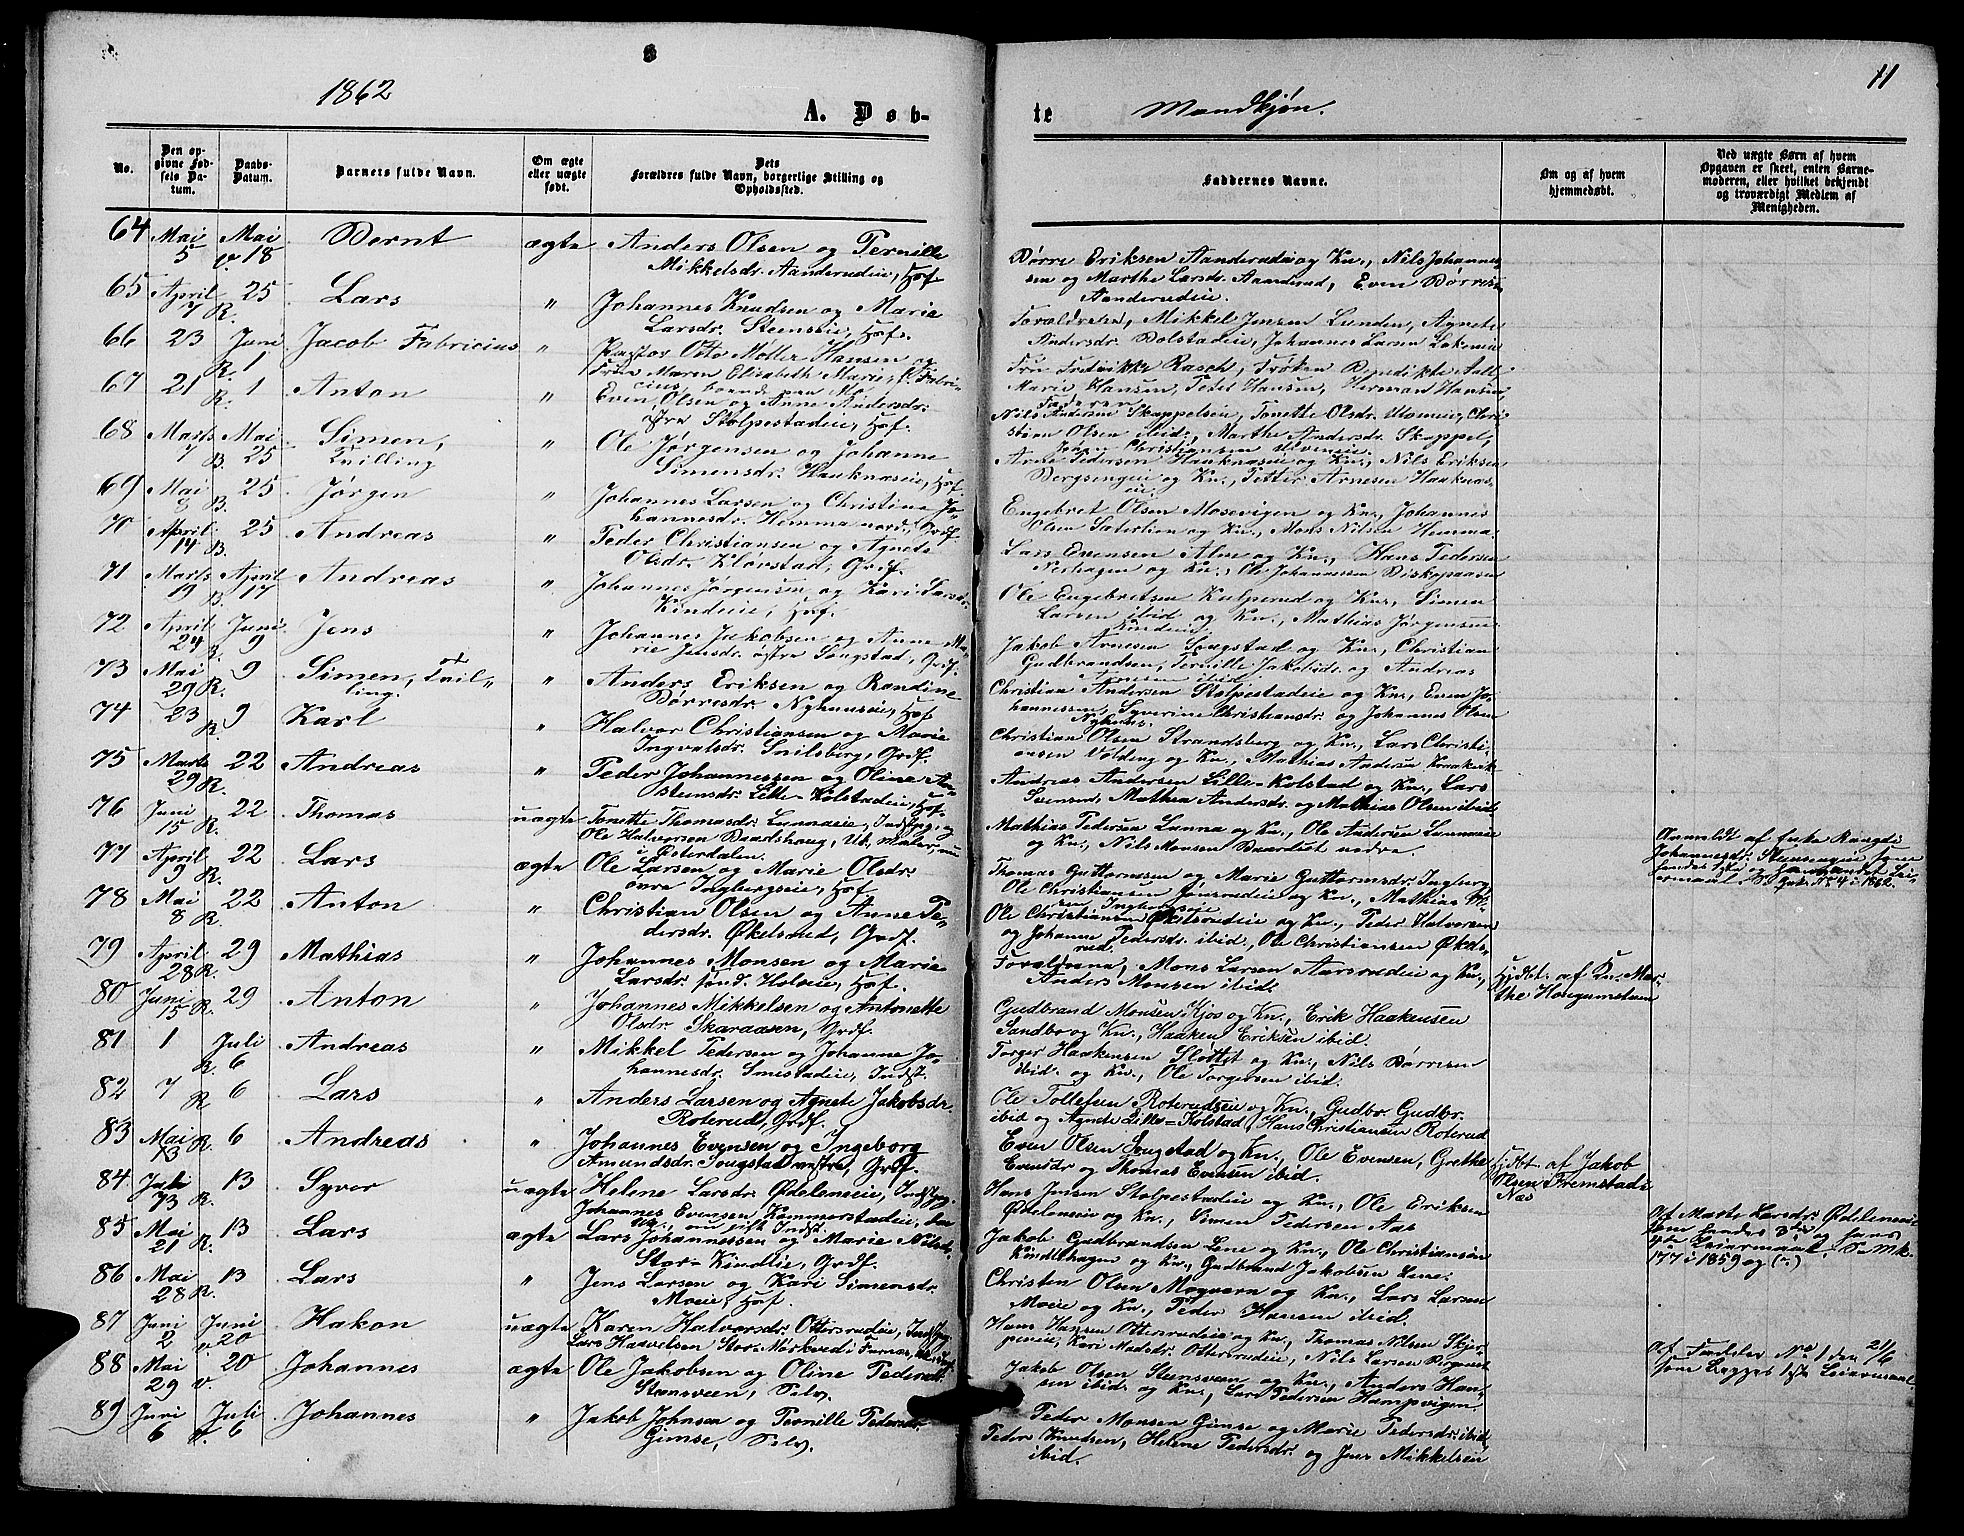 1862
A. Døb-
te
Mandkjøn.
11
No.
Den op-
givne Fød-
sels Da-
tum.
Daabs-
Datum.
Barnets fulde Navn.
Om ægte
eller uægte
født.
Dets
Forældres fulde Navn, borgerlige Stilling og
Opholdssted.
Faddernes Navne.
Om og af hvem
hjemmedøbt.
Ved uægte Børn af hvem
Opgaven er skeet, enten Barne-
moderen, eller hvilket bekjendt
og troværdigt Medlem af
Menigheden.
64 Mai 5 Mai v. 18 Bernt ægte Anders Olsen og Pernille
Mikkelsdr. Aanderudeie, Hof
Børre Eriksen Aanderudeie og Kn., Nils Johannes-
sen og Marthe Larsdr. Aanderud, Even Børresen
Aanderudeie.
65 April 7 R. 25 Lars " Johannes Knudsen og Marie
Larsdr. Steenseie, Hof.
Forældrene, Mikkel Jensen Lunden, Agnete
Andersdr. Bolstadeie, Johannes Larsen Lokeneie
66 23 Juni R. 1 Jacob Fabricius " Pastor Otto Møller Hansen og
Frue Maren Elisabeth Marie, f. Fabri-
cius, boende paa
Frue Fredrikke Rasch, Frøken Benedikte
Marie Hansen, Peter Hansen, Herman Hansen
Faderen
67 21 R. 1 Anton " Even Olsen og Anne Andersdr.
Øvre Stolpestadeie, Hof.
Nils Andersen Skappelseie, Tonette Olsdr. Chri-
stian Olsen ibid., Marthe Andersdr. Skappel,
Christiansen
68 Marts 7 B. Mai 25 Simen,
Tvilling " Ole Jørgensen og Johanne
Simensdr. Haaknæseie, Hof.
Arne Pedersen Haaknæseie og Kn., Nils Eriksen
Bergsengeie og Kn., Petter Arnesen Haaknæs
eie.
69 Mai B. 25 Jørgen " Johannes Larsen og Christine Jo-
hannesdr. Hemma nord., Grdf.
Engebret Olsen Mosevigen og Kn., Johannes
Olsen Saterlien og Kn., Mons Nilsen Hemma
70 April 14 B. 25 Andreas " Peder Christiansen og Agnete
Olsdr. Kløvstad, Grdf.
Lars Evensen Alm og Kn., Hans Pedersen
Neshagen og Kn., Ole Johannessen Biskopaasen
71 Marts 19 B. April 17 Andreas " Johannes Jørgensen og Kari Larsdr.
Kindeie, Hof.
Ole Engebretsen Kulperud og Kn., Simen
Larsen ibid og Kn., Mathias Jørgensen
Kindeie
72 April 24 R. Juni 9 Jens " Johannes Jakobsen og Anne Ma-
rie Jensdr. østre Sougstad, Grdf.
Jakob Arnesen Sougstad og Kn., Christian
Gudbrandsen, Pernille Jakobsdr. og Andreas
Arnesen ibid.
73 Mai 29 R. 9 Simen, Tvil-
ling. " Anders Eriksen og Randine
Børresdr. Nyhuuseie, Hof
Christian Andersen Stolpestadeie og Kn., Even Jo-
hannessen, Syverine Christiansdr. og Johannes Olsen
Nyhuus.
74 23 R. 9 Karl " Halvor Christiansen og Marie
Ingvaldsdr. Snilsberg, Grdf.
Christian Olsen Strandsberg og Kn., Lars Christi-
ansen Volding og Kn., Mathias Andersen Kraakvik
75 Marts 29 R. 22 Andreas " Peder Johannessen og Oline An-
steensdr. Lille-Kolstadeie, Hof.
Andreas Andersen Lille-Kolstad og Kn., Lars
Svensen, Mathea Andersdr. og Mathias Olsen ibid.
76 Juni 15 R. 22 Thomas uægte Tonette Thomasdr. Lunnaeie, Indstpg. og
Ole Halvorsen Baadshaug, U. Maler, nu
i Østerdalen.
Mathias Pedersen Lunna og Kn., Ole Andersen Lunnaeie
og Kn., Nils Monsen Baarlist nedre.
Anmeldt af Enke Rangdi
Johannesdr. Steensengeie som
hendes 1ste og 2det Lei-
ermaal. No. 4 i 1862.
77 April 9 R. 22 Lars ægte Ole Larsen og Marie Olsdr.
øvre Ingbergseie, Hof
Thomas Guttormsen og Marie Guttormsdr. Ingberg
Ole Christiansen Jønsrudeie og Kn., Mathias
78 Mai 8 R. 22 Anton " Christian Olsen og Anne Pe-
dersdr. Økelsrud, Grdf.
Ole Christiansen Økelsrudeie og Kn., Peder Halvorsen
og Johanne Pedersdr. ibid., Ole Christiansen Økels-
rud.
79 April 28 R. 29 Mathias " Johannes Monsen og Marie
Larsdr. sønd. Holseie, Hof.
Forældrene, Mons Larsen Aarsrudeie og Kn.,
Anders Monsen ibid.
Hjdbt. af Kn. Mar-
the Haugumstuen
80 Juni 15 R. 29 Anton " Johannes Mikkelsen og Antonette
Olsdr. Skaraasen, Grdf.
Gudbrand Monsen Kjos og Kn., Erik Haakensen
Sandbo og Kn., Haaken Eriksen ibid.
81 1 Juli R. 6 Andreas " Mikkel Pedersen og Johanne Jo-
hannesdr. Smestadeie, Indst.
Torger Haakensen Slottet og Kn., Nils Børresen
ibid. og Kn., Ole Torgersen ibid.
82 7 R 6 Lars " Anders Larsen og Agnete Jakobsdr.
Roterud, Grdf.
Ole Tollefsen Roterudseie og Kn., Gudbr. Gudbr.
ibid og Agnete Lille-Kolstad, Hans Christiansen Roterud
83 Mai 13 R. 6 Andreas " Johannes Evensen og Ingeborg
Amundsdr. Sougstad vestre, Grdf.
Even Olsen Sougstad og Kn., Ole Evensen, Grethe
Evensdr og Thomas Evensen ibid.
Hjdbt. af Jakob
Olsen Fremstadeie
Næs
84 R. 13 Syver uægte Helene Larsdr. Ødeleneie, Indstpg.
Johannes Evensen Kommerstadeie,
nu gift Indst.
Hans Jensen Stolpestadeie og Kn., Ole Eriksen
Ødeleneie og Kn., Simen Pedersen Aas
af Marte Larsdr. Ødeleneie
som hendes 3die og hans
4de Leiermaal,
177 i 1859 og (-.)
85 Mai 21 R. 13 Lars ægte Lars Johannessen og Marie Nilsdr.
Stor-Kindlie, Grdf.
Jakob Gudbrandsen Lene og Kn., Ole Christiansen
Kindlihagen og Kn., Gudbrand Jakobsen Lene.
86 Mai 28 R. 13 Lars " Jens Larsen og Kari Simensdr.
Moeie, Hof.
Christen Olsen Mogvarn og Kn., Lars Larsen
Moeie og Kn., Peder Hansen ibid.
87 Juni 2 Juni v. 20 Hakon uægte Karen Halvorsdr. Ottersrudeie, Indstpg.
Lars Haavelsen Stor-Merkved i Furnæs,
Hans Hansen Ottersrudeie og Kn., Thomas Nilsen Skjer-
peneie, Kari Madsdr. Ottersrudeie, Nils Larsen
af Fadder No 1 den 21/6
som Begges 1ste Leiermaal.
88 Mai 29 v. 20 Johannes ægte Ole Jakobsen og Oline Pedersdr.
Steensveen, Selv.
Jakob Olsen Steensveen og Kn., Anders Han-
sen ibid. og Kn., Lars Pedersen Hampvigen.
89 Juni 6 Juli v. 6 Johannes " Jakob Johnsen og Pernille Pedersdr.
Gimse, Selv.
Peder Monsen Gimse og Marie Pedersdr. ibid,
Peder Knudsen, Helene Pedersdr. og Jens Mikkelsen
ibid.